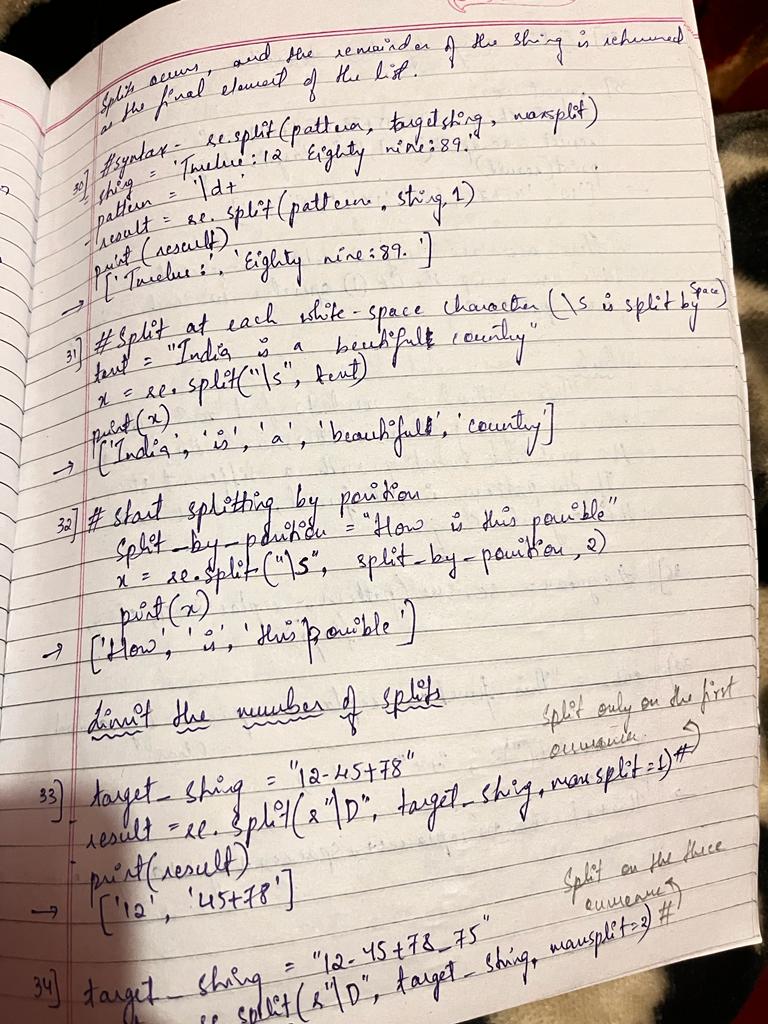 splits occurs, and the remainder of the string is returned
as the final element of the list.
30] #syntax - re.split(pattern, target string, maxsplit)
string = 'Twelve:12 Eighty nine:89.'
pattern = '\d+'
result = re.split(pattern, string, 1)
print(result)
→ ['Twelve:', 'Eighty nine:89.']
31] #Split at each white-space character (\s is split by space)
text = "India is a beautiful country"
x = re.split("\s", text)
print(x)
→ ['India', 'is', 'a', 'beautiful', 'country']
32] # Start splitting by position
split_by_position = "How is this possible"
x = re.split("\s", split_by_position, 2)
print(x)
→ ['How', 'is', 'this possible']
Limit the number of splits
split only on the first
occurrence
33] target_string = "12-45+78"
result = re.split(r"\D", target_string, maxsplit=1) #
print(result)
→ ['12', '45+78']
Split on the three
occurrence
34] target_string = "12-45+78_75"
re.split(r"\D", target_string, maxsplit=2) #